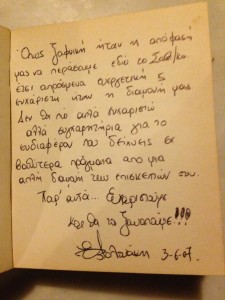 Όπως ξαφνική ήταν η απόφασή
μας να περάσουμε εδώ το Σαβ/κο
έτσι απρόσμενα ευχάριστη &
ευχάριστη ήταν η διαμονή μας
Δεν θα πω απλά ευχαριστώ
αλλά συγχαρητήρια για το
ενδιαφέρον που δείχνεις σε
βαθύτερα πράγματα από μια
απλή διαμονή των επισκεπτών σου.
Παρ' αυτά... Ευχαριστούμε
και θα το ξαναπούμε!!!
3-6-07.